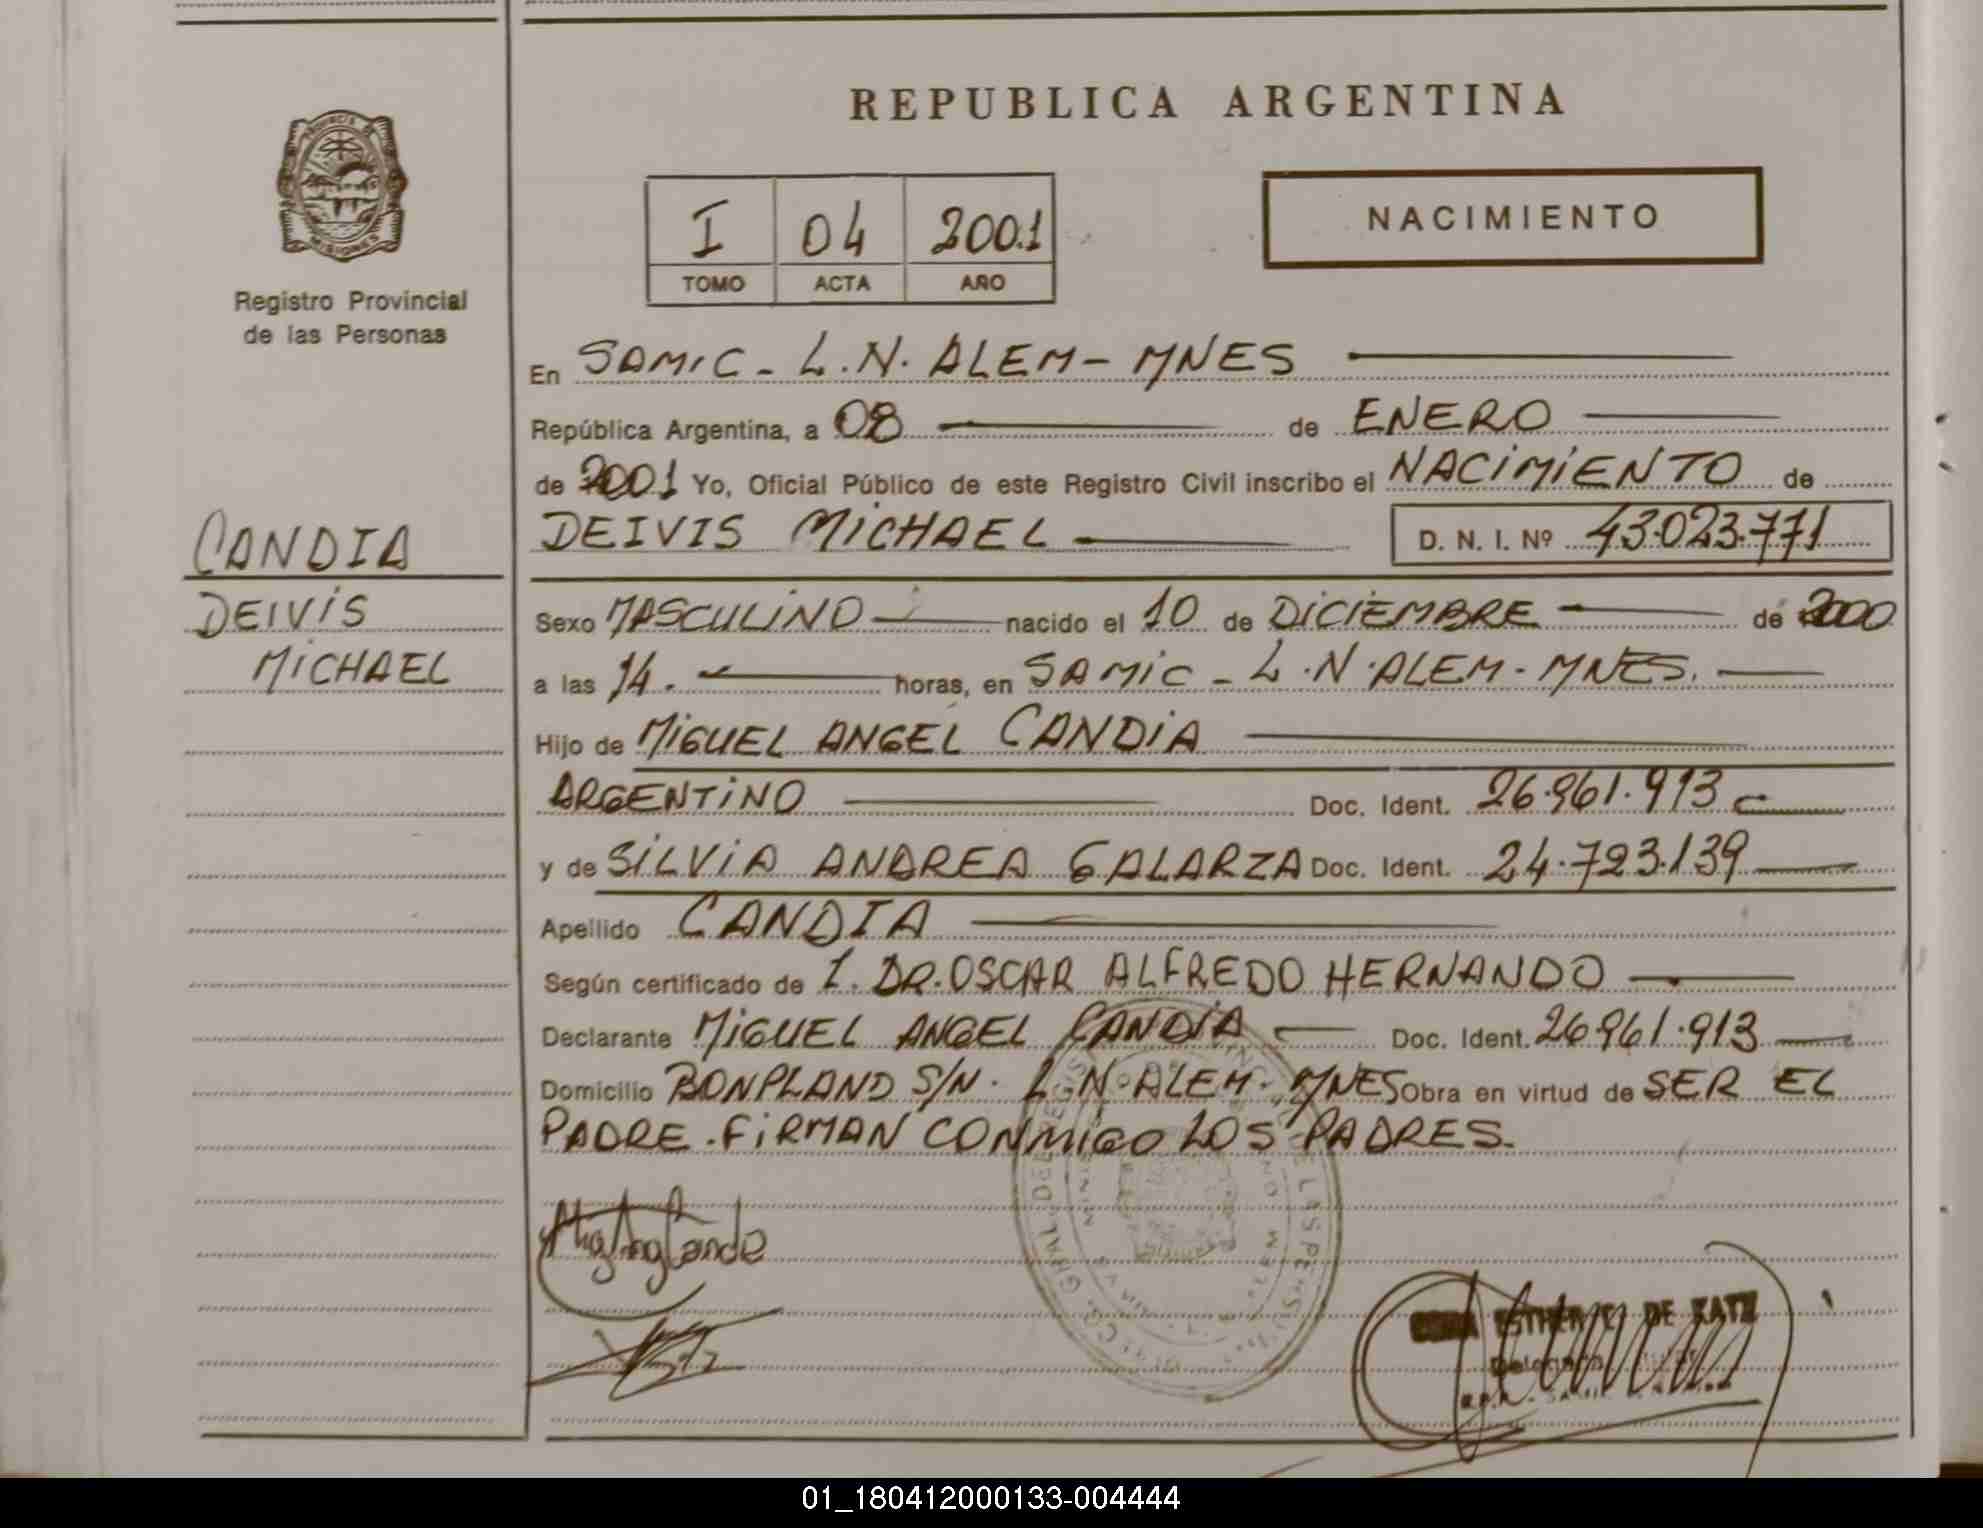 REPUBLICA ARGENTINA
PROVINCIA DE
MISIONES
Registro Provincial
de las Personas
I 04 2001
TOMO ACTA AÑO
NACIMIENTO
En SAMIC - L.N. ALEM - MNES
República Argentina, a 08 de ENERO
de 2001 Yo, Oficial Público de este Registro Civil inscribo el NACIMIENTO de
DEIVIS MICHAEL D. N. I. Nº 43.023.771
CANDIA
DEIVIS
MICHAEL
Sexo MASCULINO nacido el 10 de DICIEMBRE de 2000
a las 14. horas, en SAMIC - L.N. ALEM - MNES.
Hijo de MIGUEL ANGEL CANDIA
ARGENTINO Doc. Ident. 26.961.913
y de SILVIA ANDREA GALARZA Doc. Ident. 24.723.139
Apellido CANDIA
Según certificado de I. DR. OSCAR ALFREDO HERNANDO
Declarante MIGUEL ANGEL CANDIA Doc. Ident. 26961.913
Domicilio BONPLAND S/N. L.N. ALEM. MNES Obra en virtud de SER EL
PADRE. FIRMAN CONMIGO LOS PADRES.
DE KATZ
01_180412000133-004444